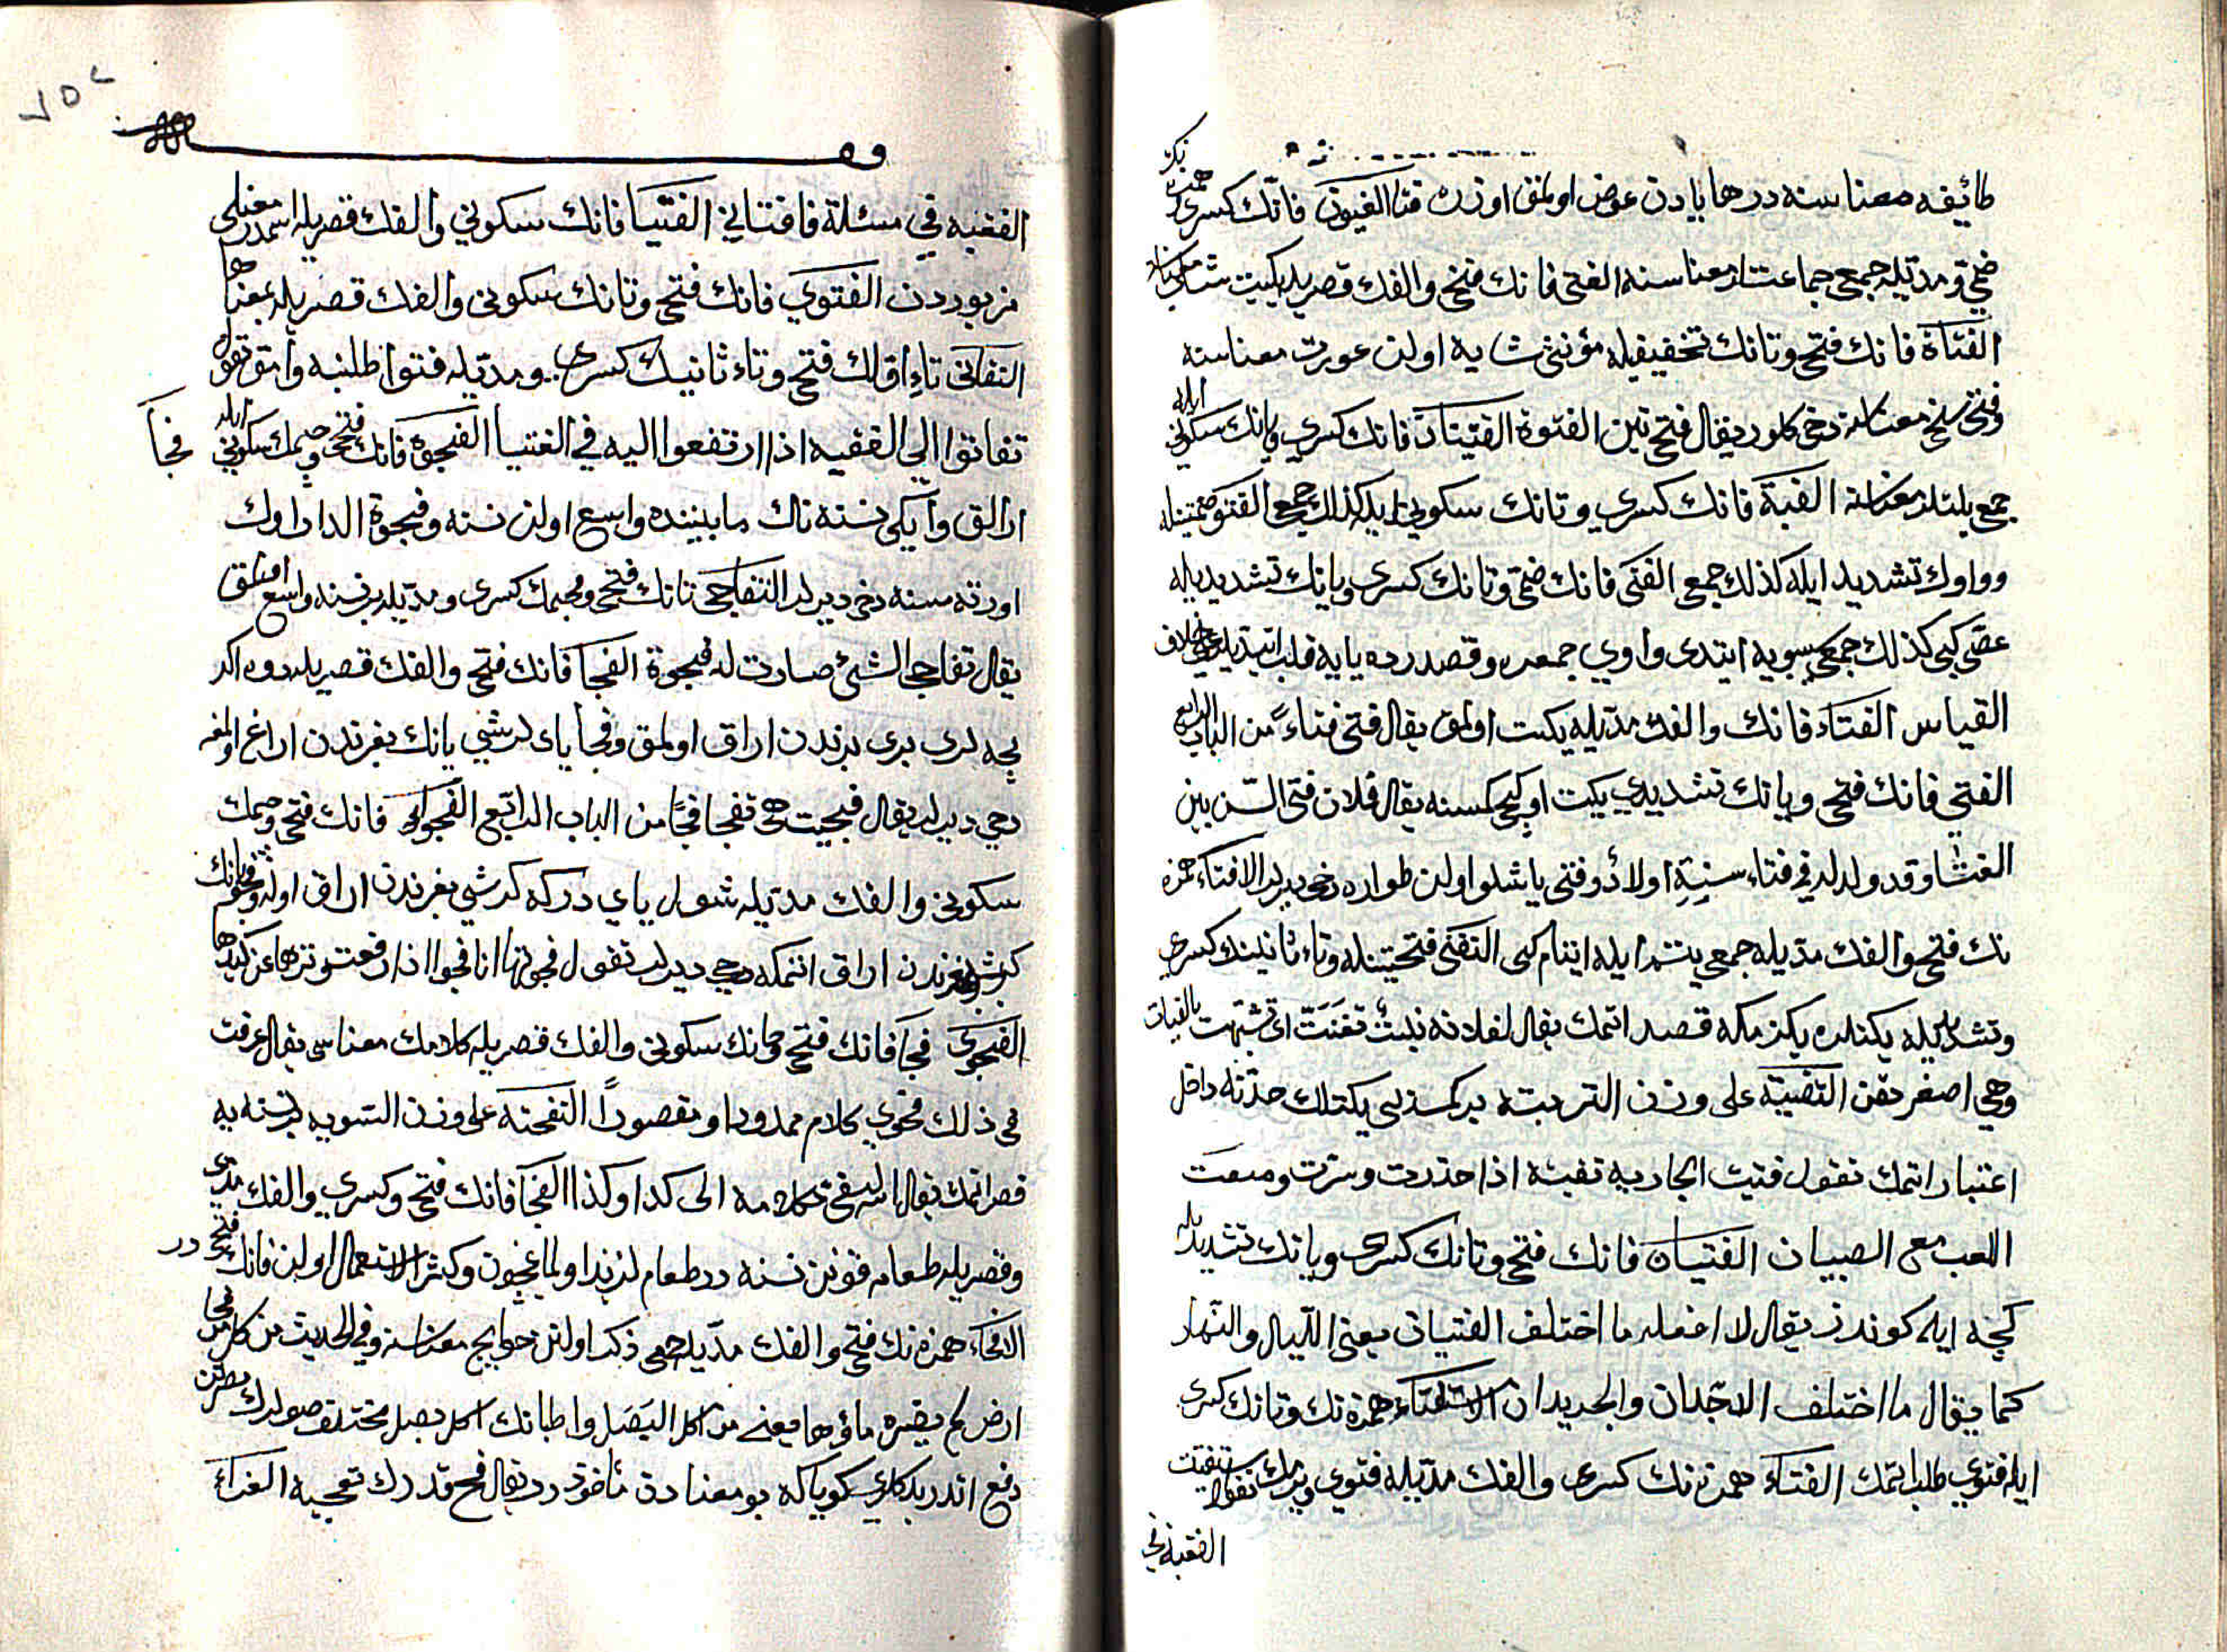 طائفه معناسنه در ها يادن عوض اولمق اوزره الفتيون فانك كسرى همزه نك
ضمى ومدتيله جمعى جماعتلر معناسنه الفتى فانك فتحى والفك قصريله يكيت شاب معناسنه
الفتاة فانك فتحى وتانك تخفيفيله مؤنثى شابه اولن عورت معناسنه
وفتى سخى معناسنه دخى كلور يقال فتى بين الفتوة الفتيان فانك كسرى ويانك سكونى ايله
جمعى يكتلر معناسنه الفتية فانك كسرى وتانك سكونى ايله كذلك جمعى الفتو ضمتينله
وواوك تشديد ايله كذلك جمعى الفتى فانك ضمى وتانك كسرى ويانك تشديديله
عصى كبى كذلك جمعى سيبويه ايتدى واوى جمعده وقصدرده يايه قلب ايتديلر على خلاف
القياس الفتاء فانك والفك مديله يكت اولمق يقال فتى فتاء من الباب الرابع
الفتى فانك فتحى ويانك تشديدى يكيت اولجى كمسنه يقال فلان فتى السن بين
الفتاء وقد ولد له فى فتاء سنه اولاد وفتى ياشلو اولن طواره دخى ديرلر الافتاء همزه
نك فتحى والفك مديله جمعى يتيم ايله ايتام كبى التفتى فتحتينله وتاء ثانينك كسرى
وتشديديله يكتلره بكزمكه قصد اتمك يقال لفلانه بنت تفتت اى تشبهت بالفتيات
وهى اصغرهن التفتية على وزن التربية بر كسنه يى يكتلك حدنه داخل
اعتبار اتمك تقول فتيت الجارية تفتية اذا خدرت وسترت ومنعت
اللعب مع الصبيان الفتيان فانك فتحى وتانك كسرى ويانك تشديديله
كيجه ايله كوندز يقال لا افعله ما اختلف الفتيان يعنى الليل والنهار
كما يقال ما اختلف الاجدان والجديدان الاستفتاء همزه نك وتانك كسرى
ايله فتوى طلب اتمك الافتاء همزه نك كسرى والفك مديله فتوى ويرمك تقول استفتيت
الفقيه فى
٢٥٧
فـ
الفقيه فى مسئلة فافتانى الفتيا فانك سكونى والفك قصريله اسمدر معنلرى
مزبوردن الفتوى فانك فتحى وتانك سكونى والفك قصريله بمعناها
التفاتى تاء اولك فتحى وتاء ثانيك كسرى ومديله فتوا طلبنه وارمق تقول
تفاتوا الى الفقيه اذا ارتفعوا اليه فى الفتيا الفجوة فانك فتحى وجيمك سكونى ايله
فجا
ارالق وايكى نسنه نك مابيننده واسع اولن نسنه وفجوة الدار اوك
اورته سنه دخى ديرلر التفاجى تانك فتحى وجيمك كسرى ومديله بر نسنه واسع اولمق
يقال تفاجى الشئ صارت له فجوة الفجا فانك فتحى والفك قصريله دوه نك
يچه لرى برى برندن اراق اولمق وفجا ياى كرشى يانك بغرندن اراغ اولمغه
دخى ديرلر يقال فجيت هى تفجا فجا من الباب الرابع الفجواء فانك فتحى وجيمك
سكونى والفك مديله شول ياى دركه كرشى بغرندن اراق اوله وفجو يانك
كرشنى بغرندن اراق اتمكه دخى ديرلر تقول فجوتها انا فجوا اذا رفعت وترها عن كبدها
الفحوى فحا فانك فتحى وحانك سكونى والفك قصريله كلامك معناسى يقال عرفت
فى ذلك فحوى كلامه ممدودا ومقصورا التفحية على وزن التسويه بر نسنه يه
قصد اتمك يقال انه ليفحى بكلامه الى كذا وكذا الفحا فانك فتحى وكسرى والفك مدى
وقصريله طعامه قونن نسنه در طعام لذيذ اولمغيچون وكثير الاستعمال اولن فانك فتحى در
الافحاء همزه نك فتحى والفك مديله جمعى ذكر اولنن حوايج معناسنه وفى الحديث من اكل من فحا
ارض لم يضره ماؤها يعنى من اكل البصل واطبانك اكل بصل مختلف صولرك مضرتن
دفع اندر بلكلرى كويا كه بو معنادن مأخوذ در يقال فح قدرك تفحية الفداء